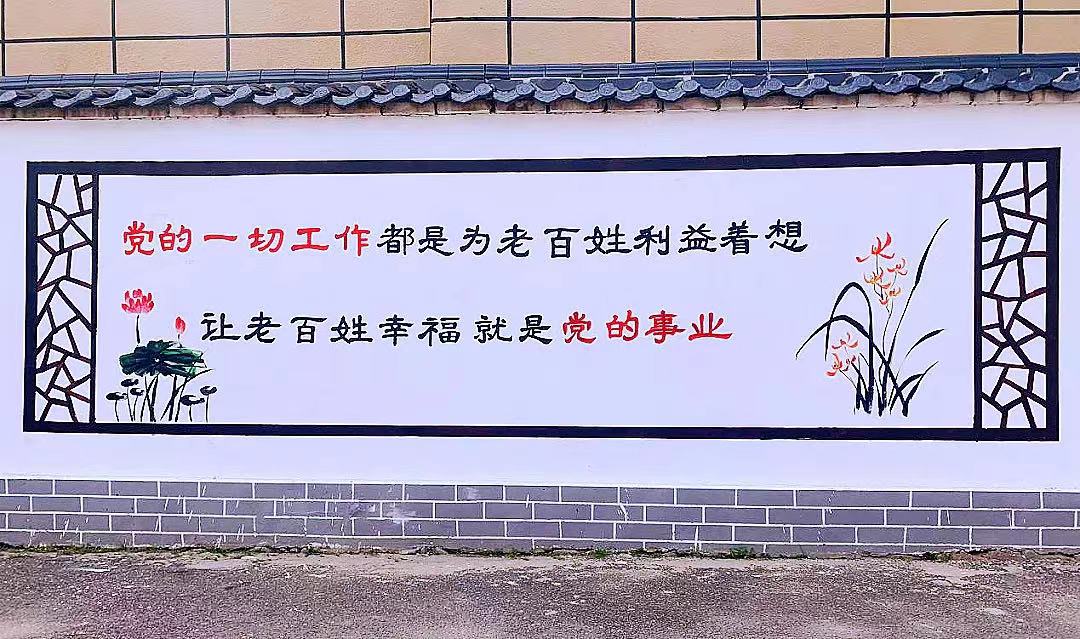 党的一切工作都是为老百姓利益着想
让老百姓幸福就是党的事业